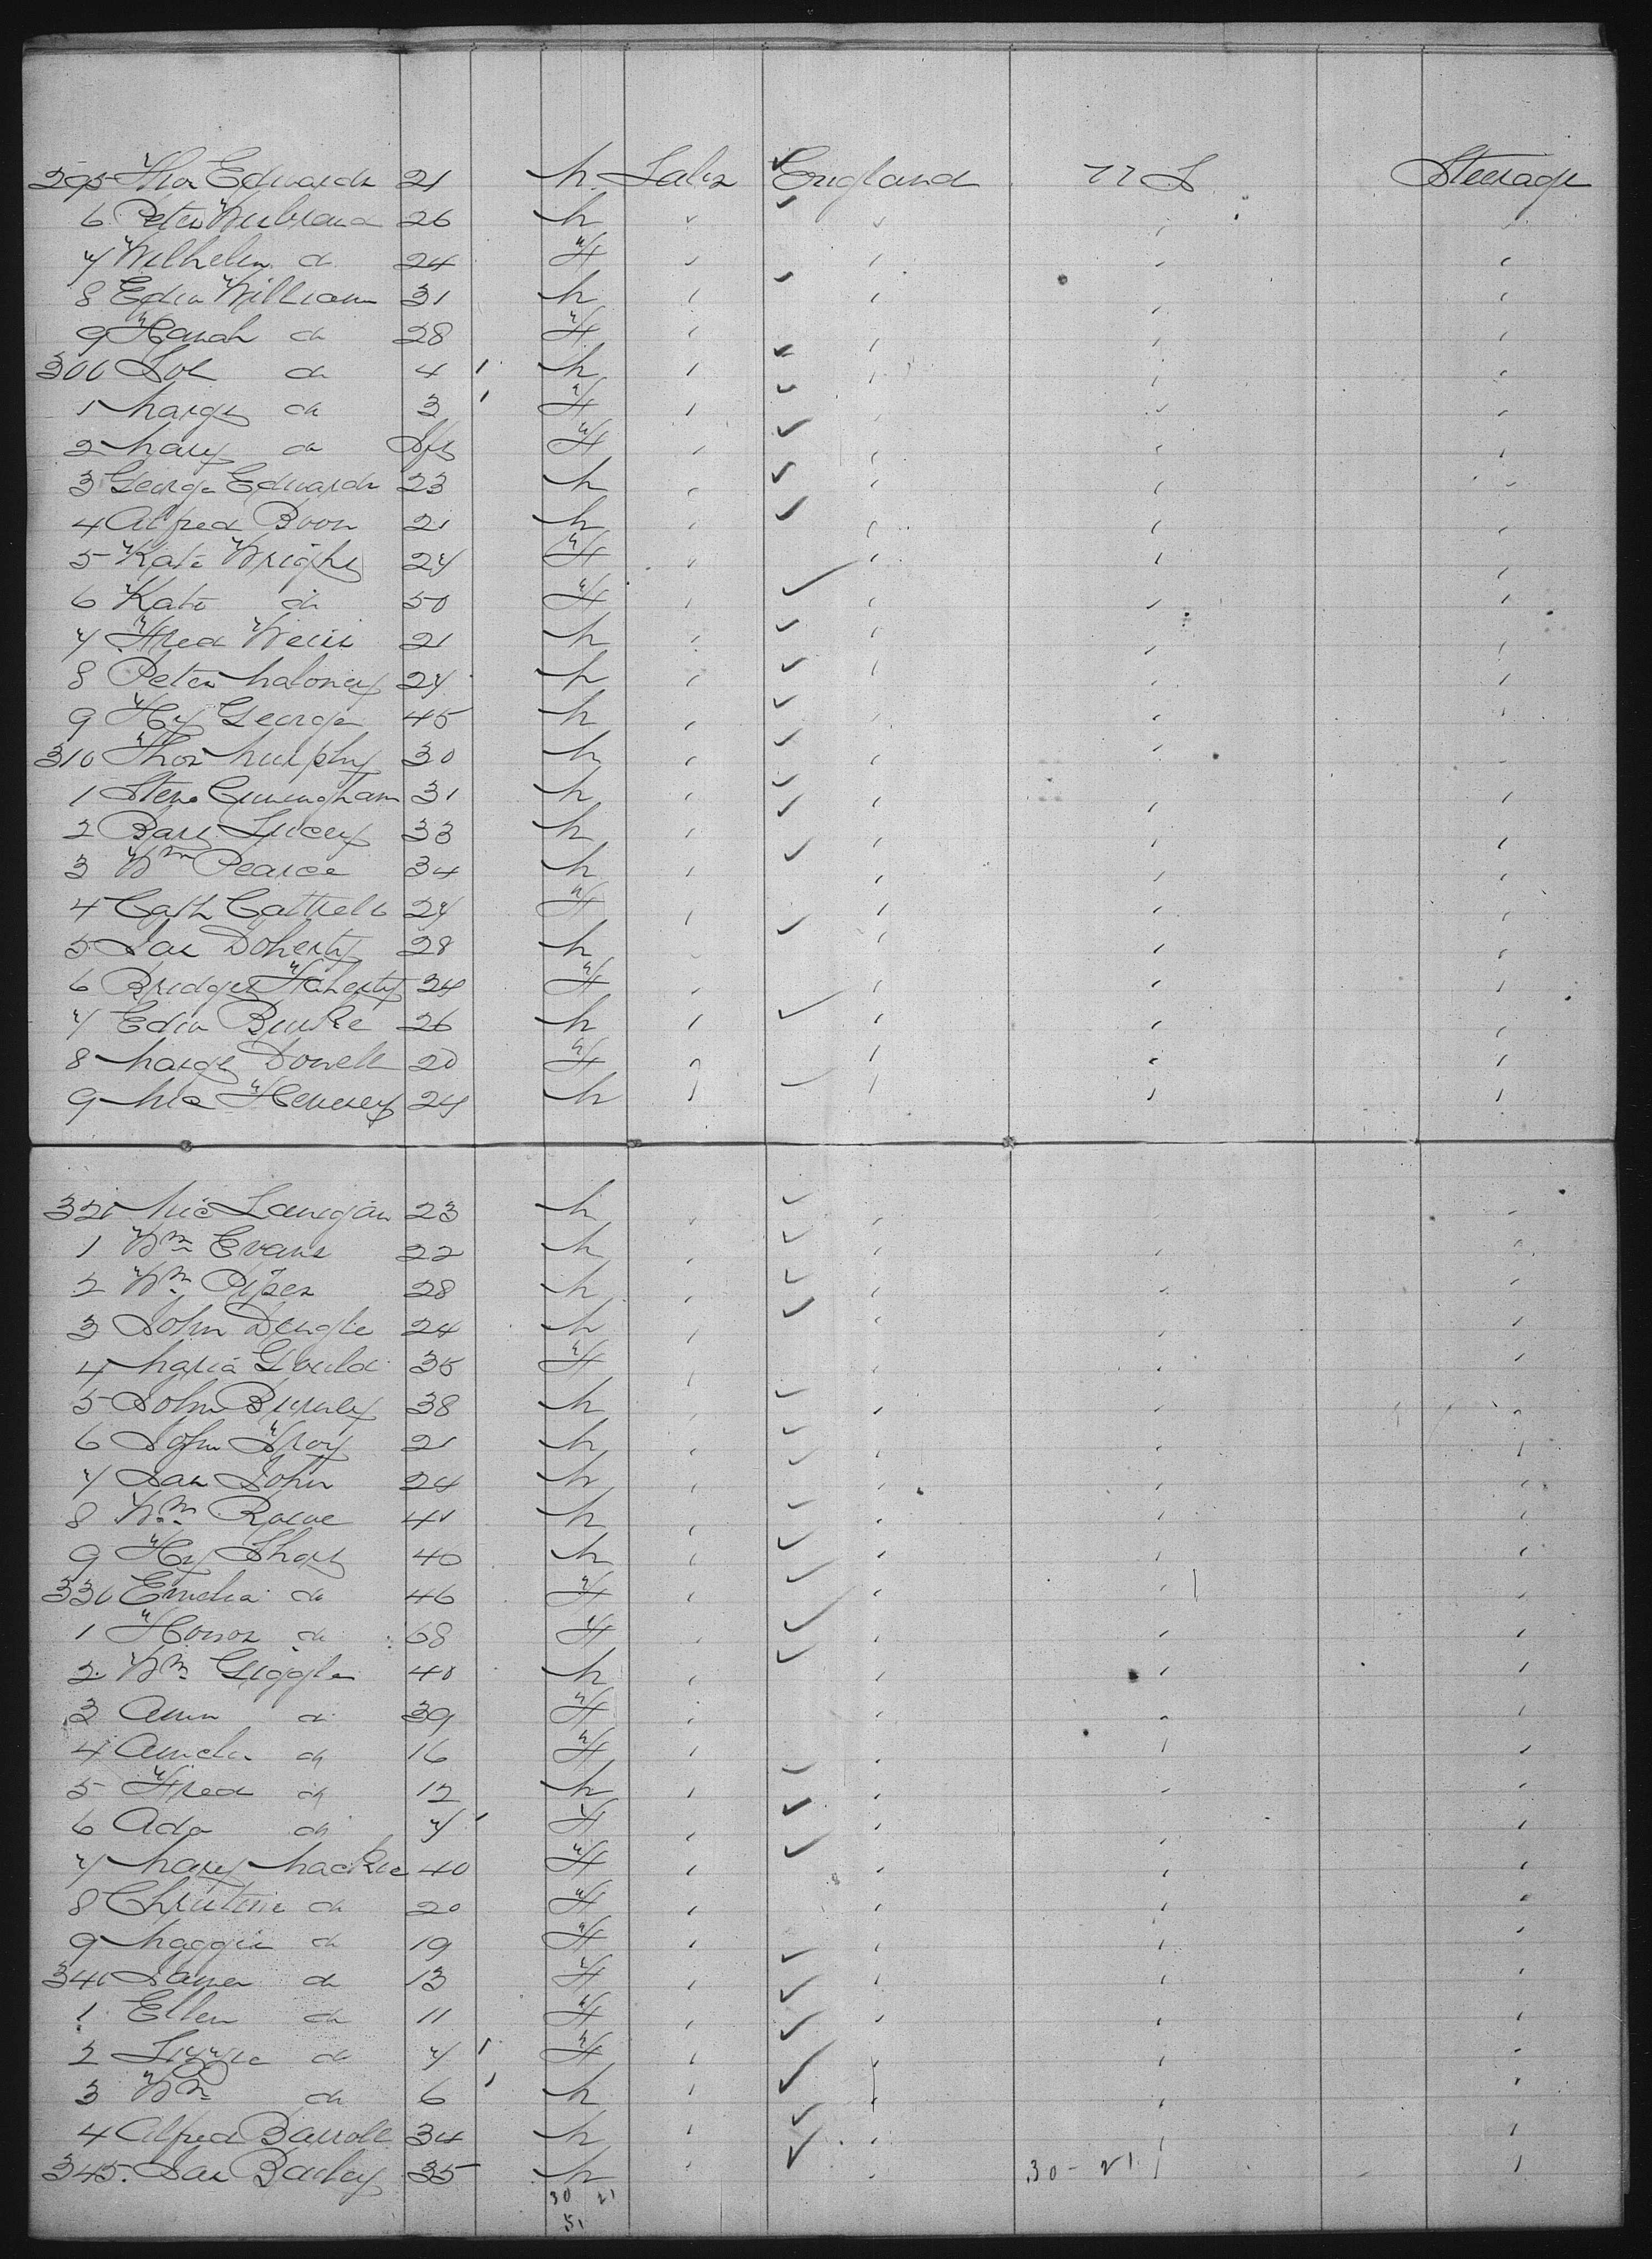 295 Thos Edwards 21 M Labr England U S Steerage
6 Peter 26 M " " " "
7 Wilhelm do 24 F " " " "
8 Edw William 31 M " " " "
9 Hanah do 28 F " " " "
300 do 4 M " " " "
1 Margt do 3 F " " " "
2 Mary do Inft F " " " "
3 George Edwards 23 M " " " "
4 Alfred Boon 21 M " " " "
5 Kate Wright 27 F " " " "
6 Kate do 50 F " " " "
7 Fred 21 M " " " "
8 Peter Maloney 27 M " " " "
9 Hy George 45 M " " " "
310 Thos Murphy 30 M " " " "
1 Steve Cuningham 31 M " " " "
2 Lucey 33 M " " " "
3 Wm Pearce 34 M " " " "
4 Cath Cattrell 27 F " " " "
5 Jas Doherty 28 M " " " "
6 Bridget Flaherty 24 F " " " "
7 Edw Burke 26 M " " " "
8 Margt Dowell 20 F " " " "
9 Mic 27 M " " " "
320 Mic Lanigan 23 M " " " "
1 Wm Evans 22 M " " " "
2 Wm Piper 28 M " " " "
3 John Dengle 24 M " " " "
4 Maria Gould 35 F " " " "
5 John 38 M " " " "
6 John Troy 21 M " " " "
7 Jas John 24 M " " " "
8 Wm 41 M " " " "
9 Hy Short 40 M " " " "
330 Emelia do 46 F " " " "
1 Honor do 68 F " " " "
2 Wm Giggle 40 M " " " "
3 Ann do 39 F " " " "
4 Amelia do 16 F " " " "
5 Fred do 12 M " " " "
6 Ada do 7 F " " " "
7 Mary Mackie 40 F " " " "
8 Christine do 20 F " " " "
9 Maggie do 19 F " " " "
340 James do 13 F " " " "
1 Ellen do 11 F " " " "
2 Lizzie do 7 F " " " "
3 Wm do 6 M " " " "
4 Alfred 34 M " " " "
345. Jas Bailey 35 M " " 30 - 21 " "
30 21
51